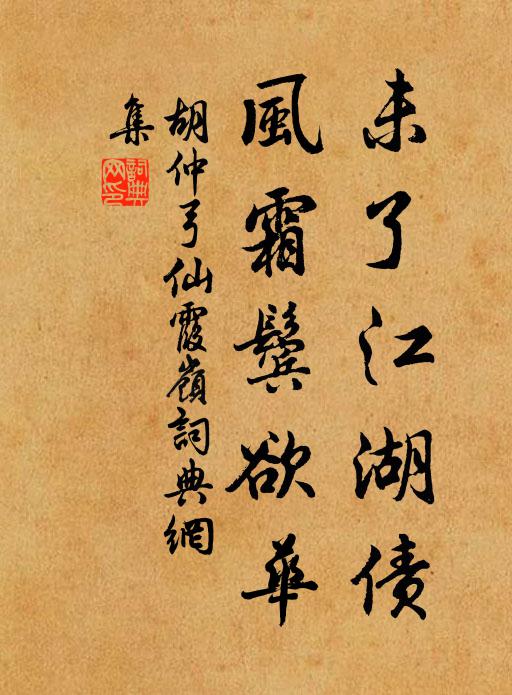 未了江湖债
風霜鬢欲華
胡仲弓仙霞嶺詞典網
集
詞典網印